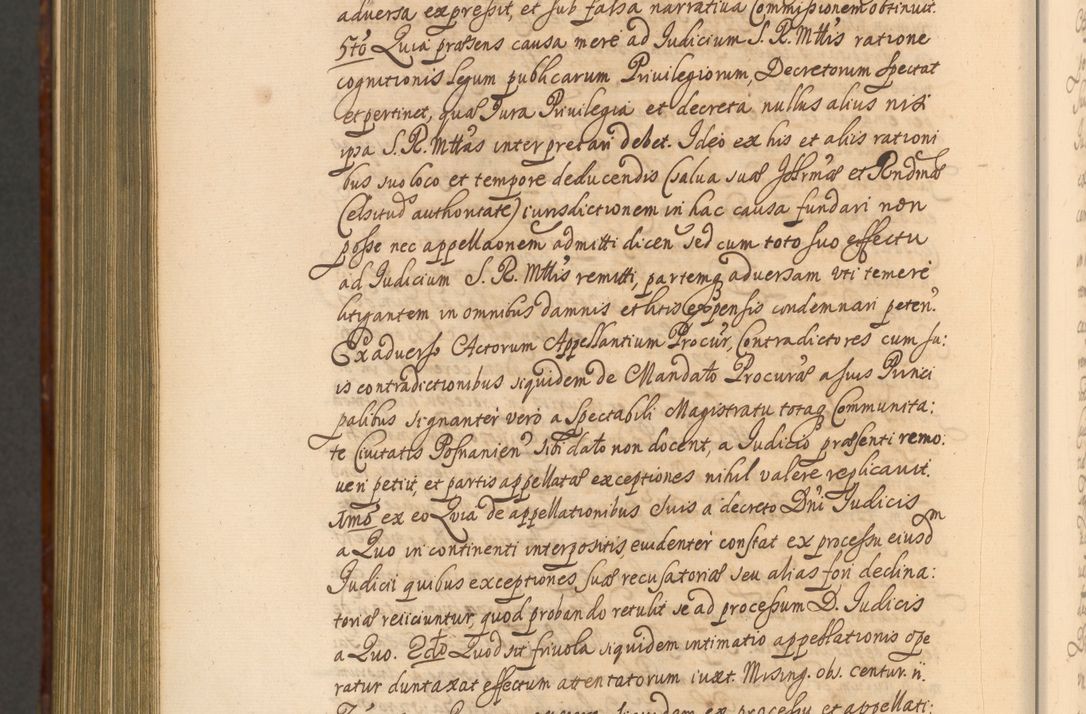 adversa expressit, et sub falsa narrativa Commissionem obtinuit.
5to Quia præsens causa mere ad Iudicium S. R. Mttis ratione
cognitionis legum publicarum Privilegiorum, Decretorum spectat
et pertinet, quæ Iura Privilegia et decreta nullus alius nisi
ipsa S. R. Mttas interpretari debet. Ideo ex his et aliis rationi
bus suo loco et tempore deducendis (salva suæ Illrmæ et Rndmæ
Celsitud authoritate) iurisdictionem in hac causa fundari non
posse nec appellaonem admitti dicen sed cum toto suo effectu
ad Iudicium S. R. Mttis remitti, partemq adversam uti temere
litigantem in omnibus damnis et litis expensis condemnari peten.
Ex adverso Actorum Appellantium Procur, Contradictores cum su:
is contradictionibus siquidem de Mandato Procuræ a suis Princi
palibus signanter vero a Spectabili Magistratu totaq Communita:
te Civitatis Posnanien sibi dato non docent, a Iudicio præsenti remo:
veri petiit, et partis appellatæ exceptiones nihil valere replicavit.
1mo ex eo Quia de appellationibus suis a decreto Dni Iudicis
a Quo in continenti interpositis evidenter constat ex processu eiusdm
Iudicii quibus exceptiones suæ recusatoriæ seu alias fori declina:
toriæ reiiciuntur, quod probando retulit se ad processum D. Iudicis
a Quo. 2do Quod sit frivola siquidem intimatio appellationis ope
ratur duntaxat effectum attentatorum iuxt. Mising. obs. centur. ii.
ex processu et appellati: